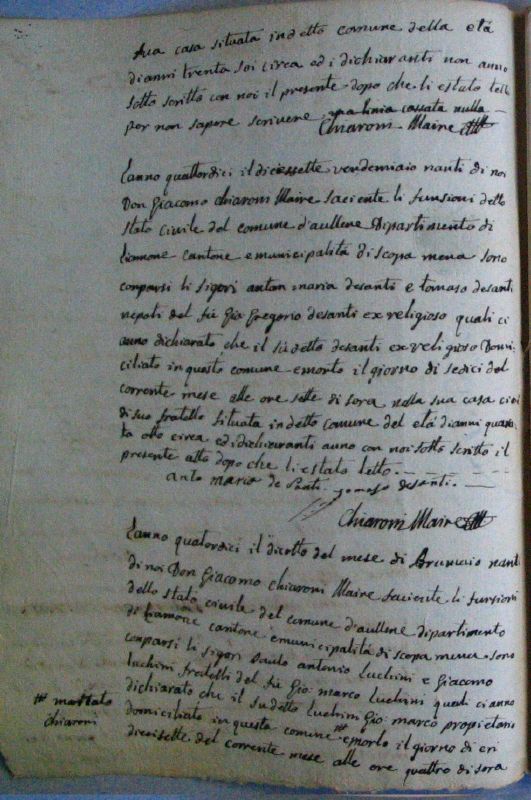 sua casa situata in detto comune della età
di anni trenta sei circa ed i dichiaranti non anno
sotto scritto con noi il presente dopo che li estato letto
per non sapere scrivere una linia cassata nulla
Chiaroni Maire
L'anno quattordici il diciessette vendemiaio nanti di noi
Don Giacomo Chiaroni Maire faciente li funsioni dello
stato civile del comune d'aullene Dipartimento di
Liamone cantone e municipalità di scopa mena sono
comparsi li sigori anton maria desanti e tomaso desanti
nepoti del fù Gio Gregorio desanti ex religioso quali ci
anno dichiarato che il sù detto desanti ex religioso Domi
ciliato in questo comune e morto il giorno di sedici del
corrente mese alle ore sette di sora nella sua casa cioè
di suo fratello situata in detto comune del età di anni quaran
ta otto circa ed i dichieranti anno con noi sotto scritto il
presente atto dopo che li estato letto.
anto maria de santi. tomaso desanti.
Chiaroni Maire
L'anno quatordici il diciotto del mese di Brumaio nanti
di noi Don Giacomo Chiaroni Maire faciente li funsioni
dello stato civile del comune d'aullene dipartimento
di Liamone cantone e municipalità di scopa mena sono
comparsi li sigori Paulo antonio Luchini e Giacomo
Luchini fratelli del fù Gio: marco Luchini quali ci anno
dichiarato che il su detto Luchini Gio: marco propietario
domiciliato in questa comune # e morto il giorno di eri
diciesette del corrente mese alle ore quattro di sora
# mottato
Chiaroni